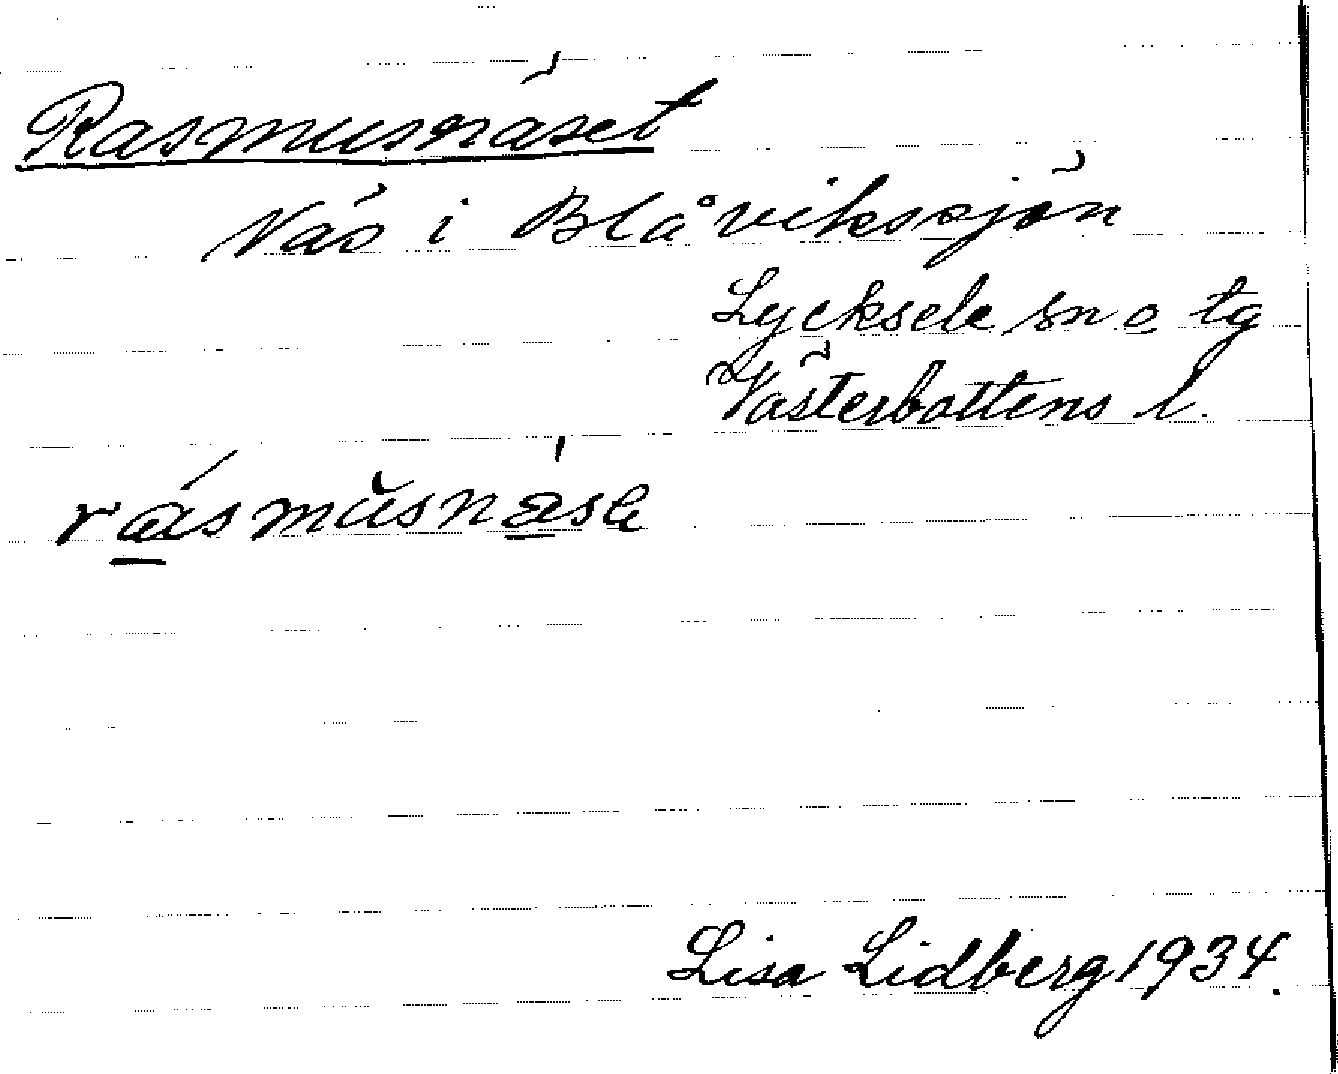 Rasmusnäset
Näs i Blåviksjön
Lycksele sn o tg
Västerbottens l.
rásmŭsnàse
Lisa Lidberg 1934.